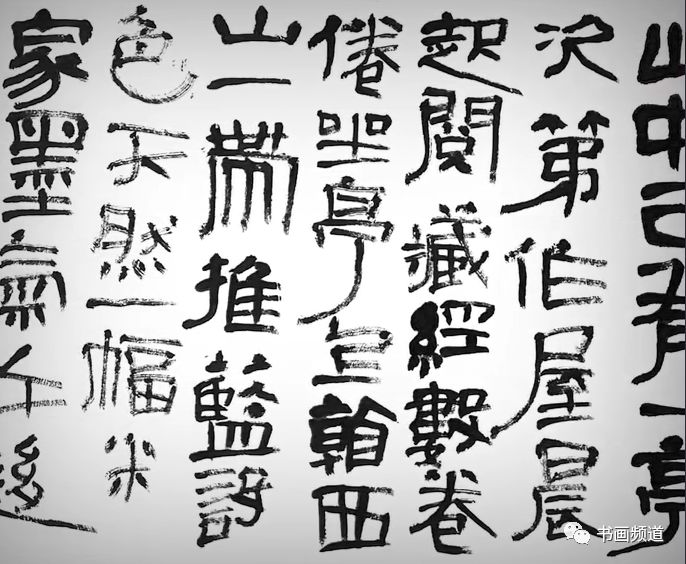 山中已有一亭
次第作屋晨
起閱藏經數卷
倦坐亭上西
山一帶推藍設
色天然一幅米
家墨氣午後
书画频道